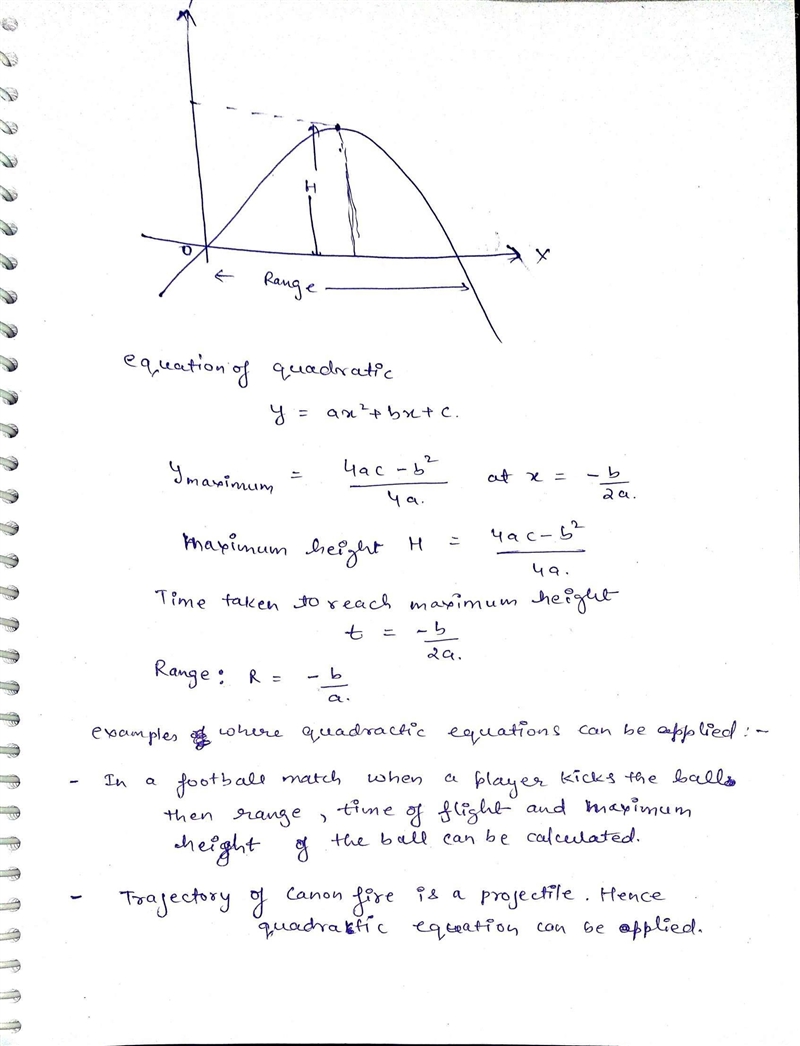 H
O
X
← Range →
equation of quadratic
y = ax² + bx + c.
y maximum = 4ac - b² / 4a. at x = -b / 2a.
Maximum height H = 4ac - b² / 4a.
Time taken to reach maximum height
t = -b / 2a.
Range: R = -b / a.
examples of where quadractic equations can be applied :-
- In a football match when a player kicks the ball
then range, time of flight and maximum
height of the ball can be calculated.
- Trajectory of Canon fire is a projectile. Hence
quadractic equation can be applied.